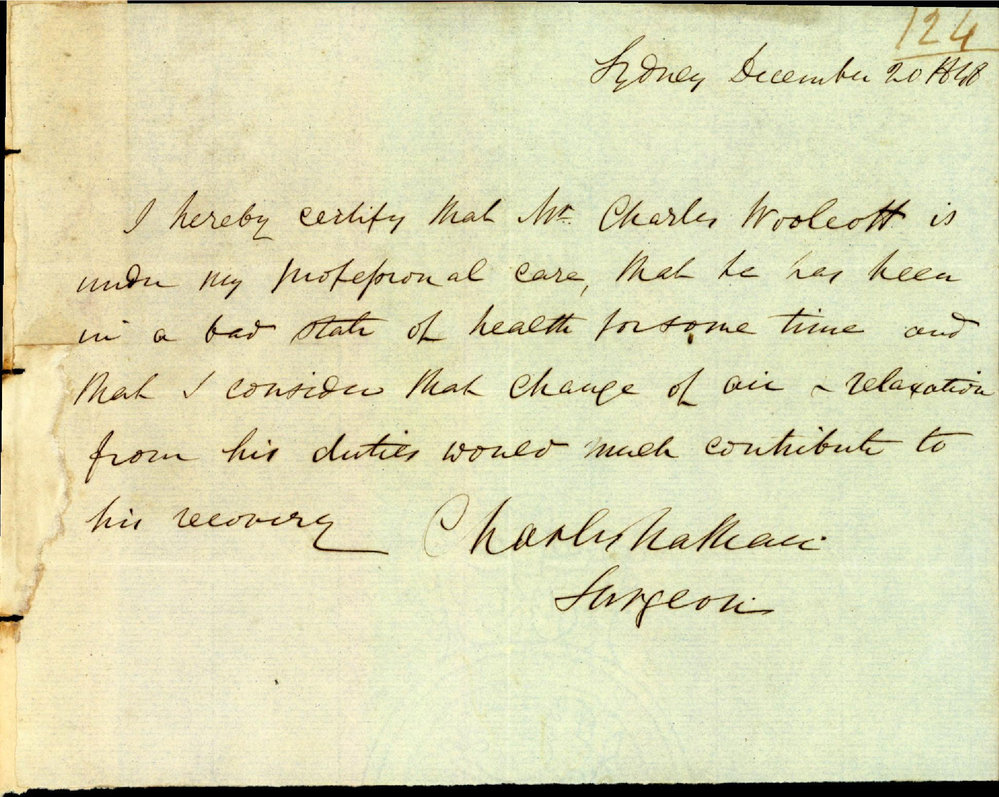 124
Sydney December 20 1848
I hereby certify that Mr. Charles Woolcott is
under my professional care, that he has been
in a bad state of health for some time and
that I consider that change of air & relaxation
from his duties would much contribute to
his recovery
Charles Nathan
Surgeon